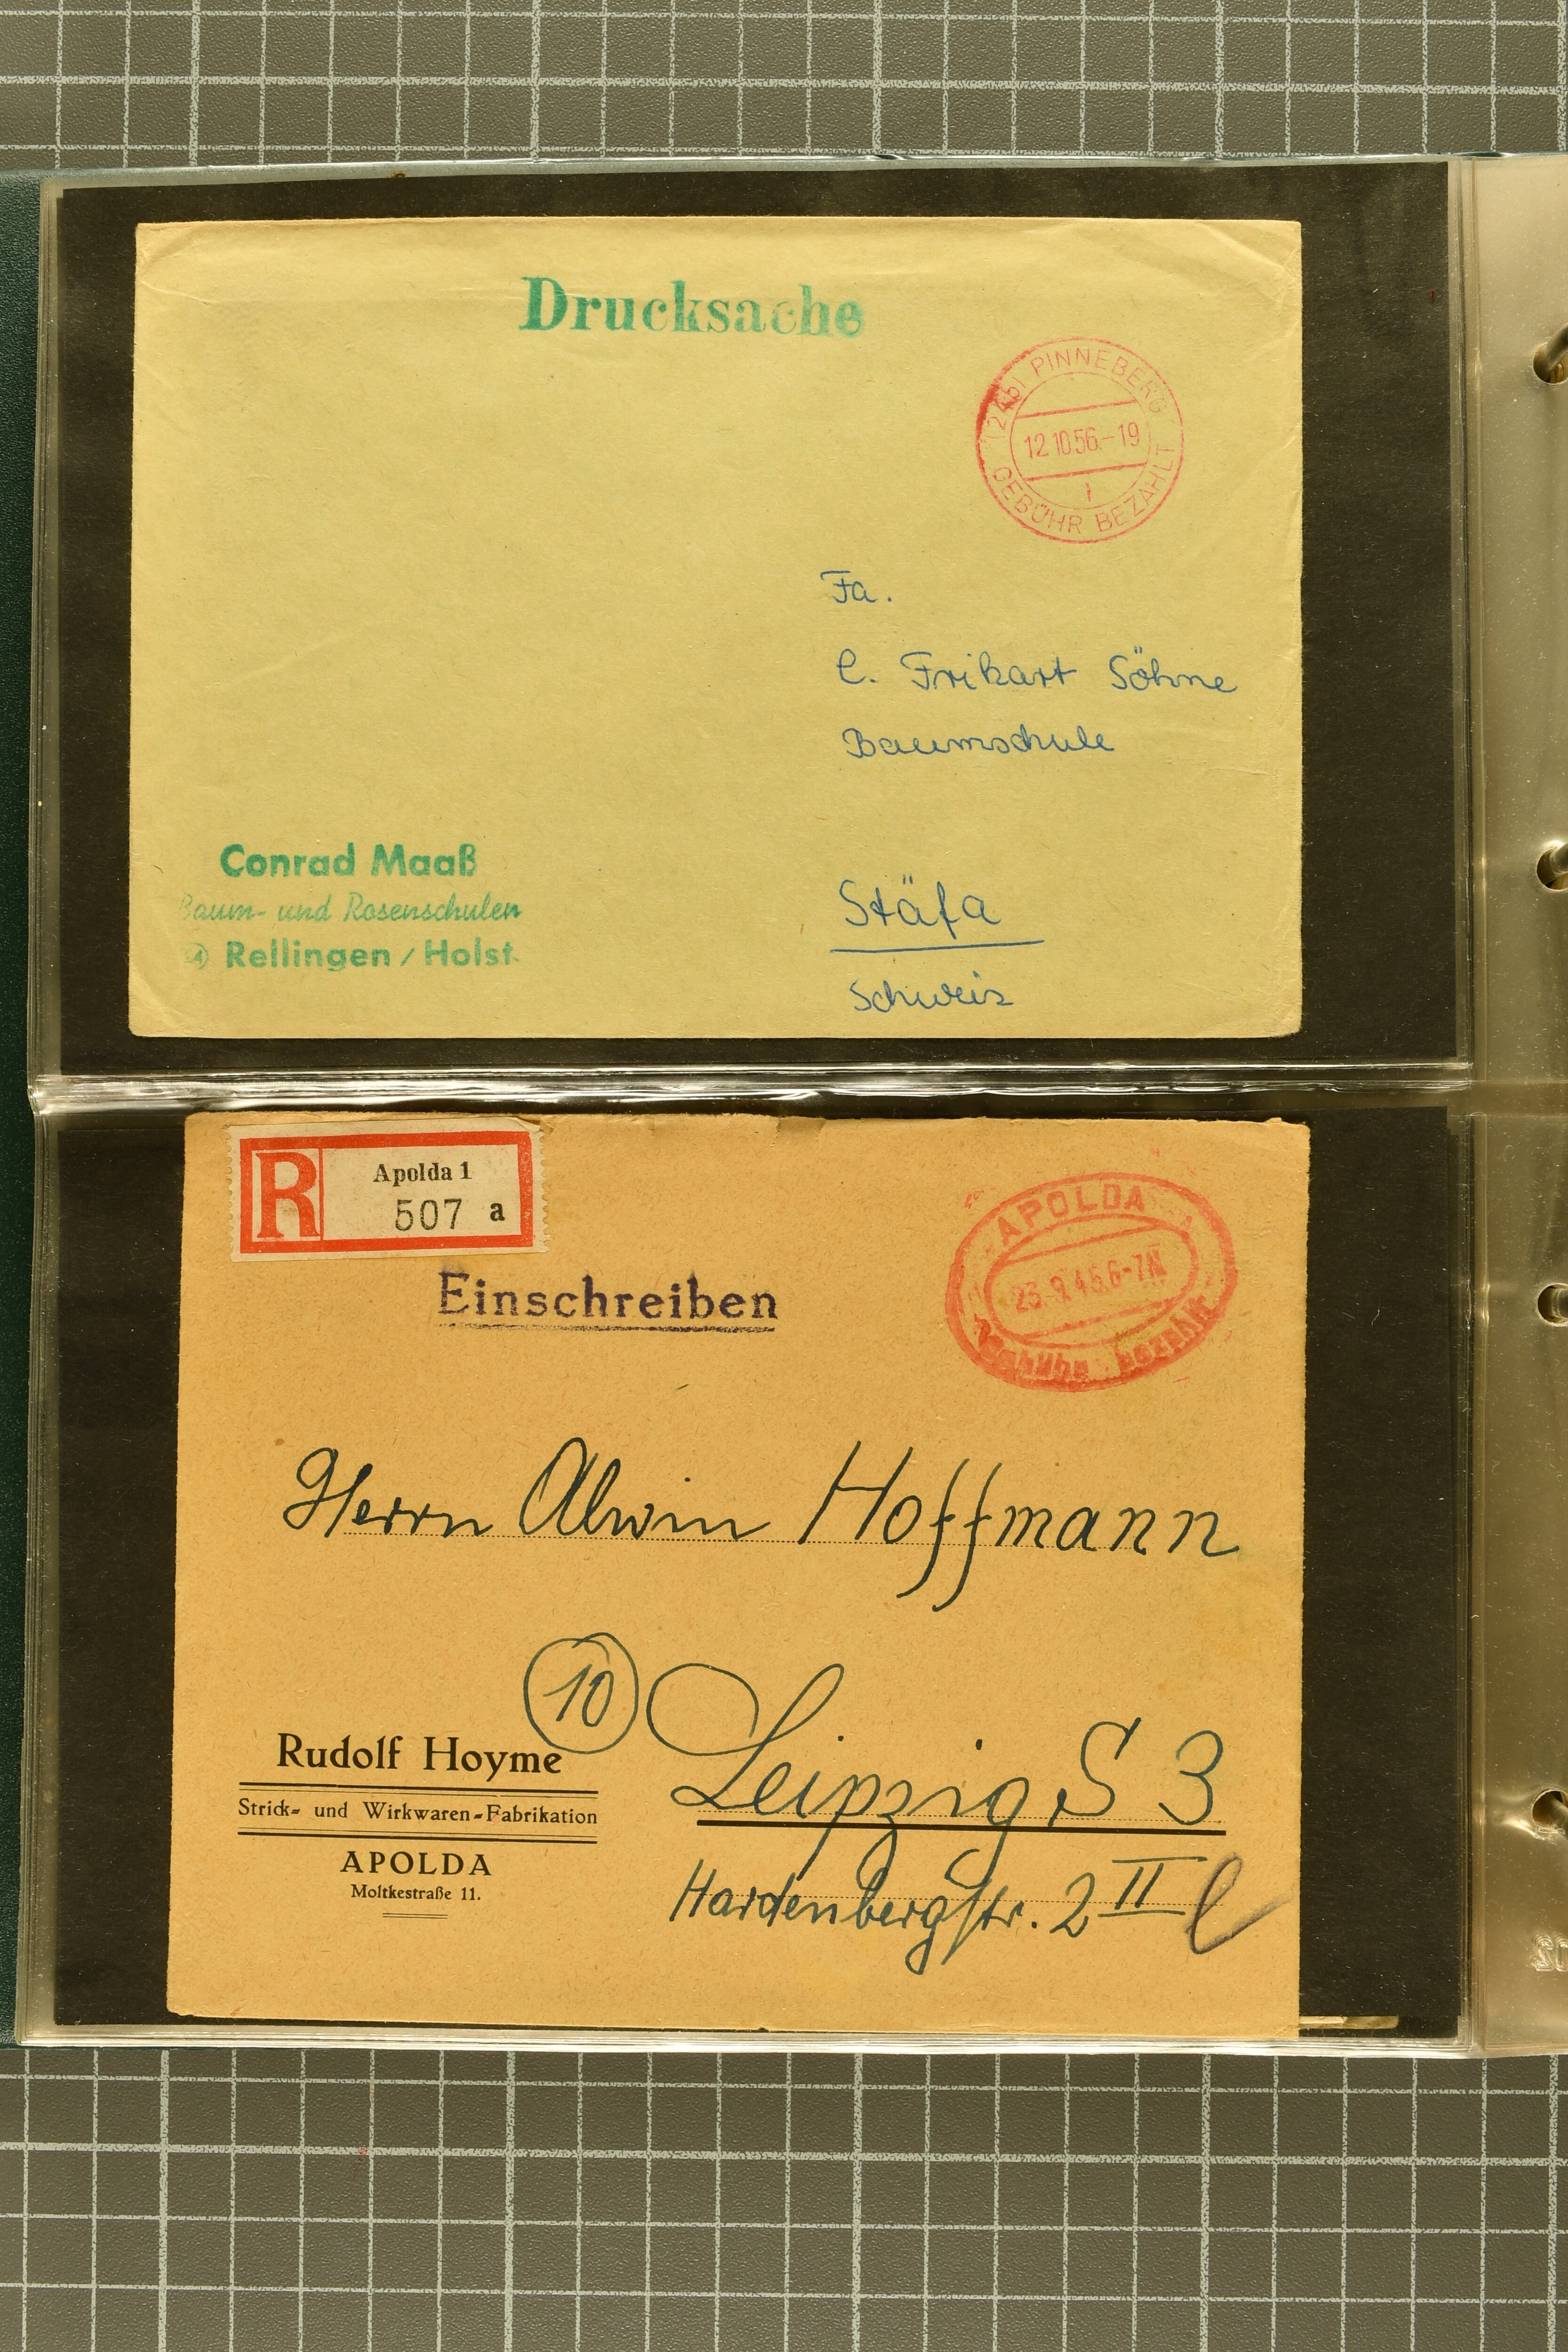 Drucksache
(24b) PINNEBERG
12.10.56.-19
GEBÜHR BEZAHLT
Fa.
C. Frikart Söhne
Baumschule
Stäfa
Schweiz
Conrad Maaß
Baum- und Rosenschulen
Rellingen / Holst.
R
Apolda 1
507 a
Einschreiben
APOLDA
bezahlt
Herrn Alwin Hoffmann
10
Leipzig S 3
Hardenbergstr. 2 II
Rudolf Hoyme
Strick- und Wirkwaren-Fabrikation
APOLDA
Moltkestraße 11.